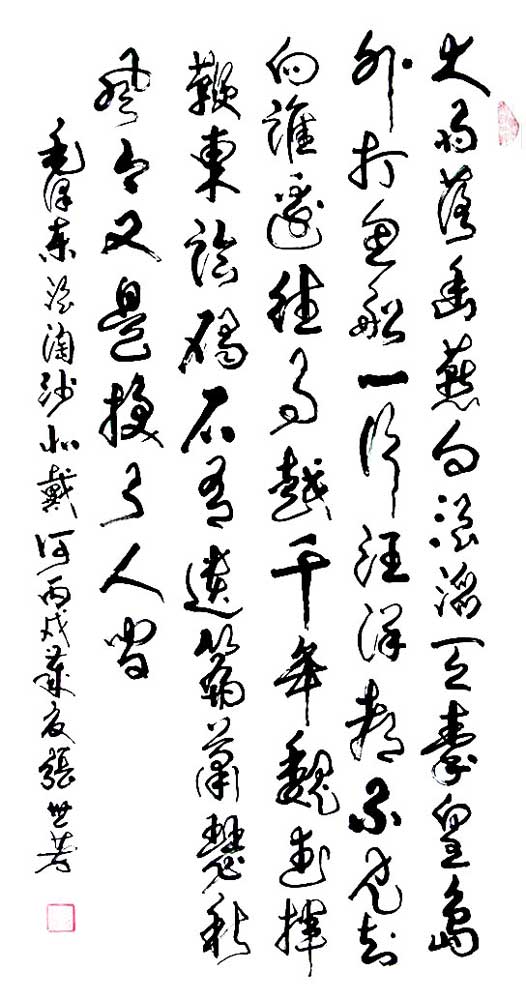 大雨落幽燕白浪滔天秦皇島
外打魚船一片汪洋都不見知
向誰邊往事越千年魏武揮
鞭東臨碣石有遺篇蕭瑟秋
風今又是換了人間
毛澤東浪淘沙北戴河丙戌歲夏張世芳